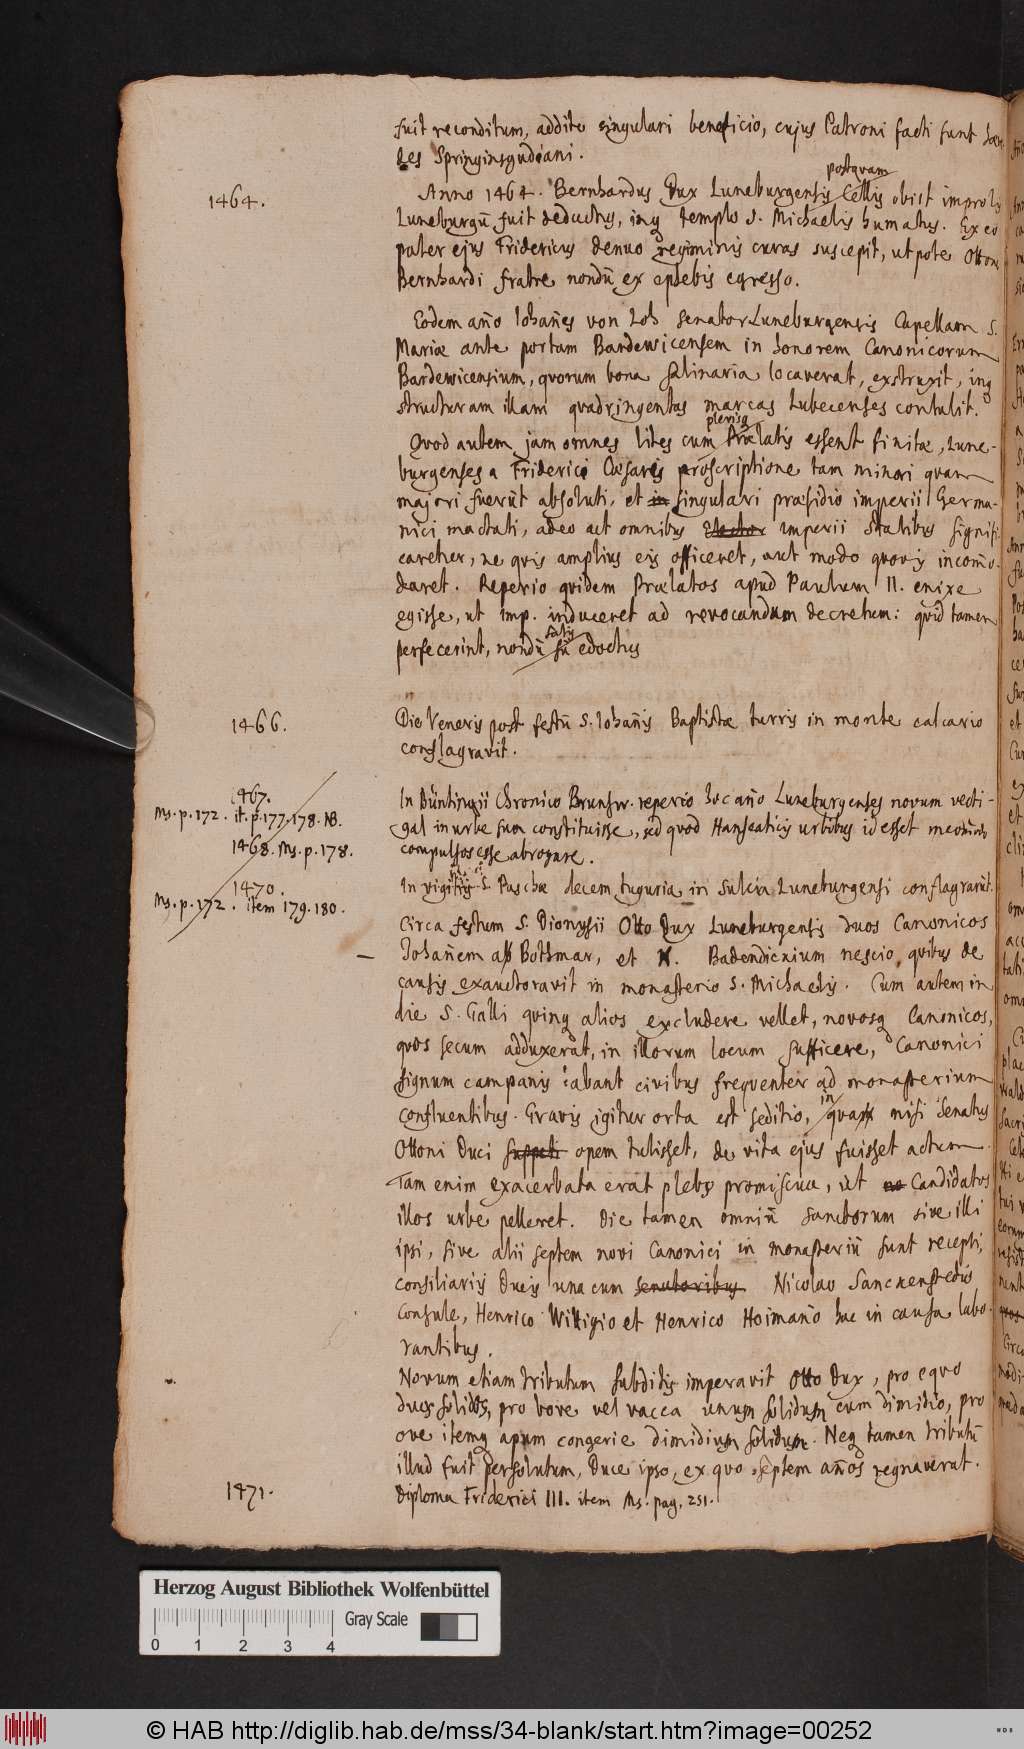 fuit reconditum, addito singulari beneficio, cujus Patroni facti sunt hæredes
des Springinsgudiani.
postquam
1464.
Anno 1464. Bernhardus Dux Luneburgensis Cellis obiit improlis
Luneburgū fuit deductus, inq templo S. Michaelis humatus. Ex eo
pater ejus Fridericus denuo regiminis curas suscepit, utpote Ottone
Bernhardi fratre nondū ex ephebis egresso.
Eodem año Iohañes von Loh senator Luneburgensis Capellam S.
Mariæ ante portam Bardewicensem in honorem Canonicorum
Bardewicensium, quorum bona salinaria locaverat, exstruxit, inq
structuram illam quadringentas marcas Lubecenses contulit.
plerisq
Quod autem jam omnes lites cum Prælatis essent finitæ, Lune-
burgenses a Friderici Cæsaris proscriptione tam minori quam
majori fuerūt absoluti, et in singulari præsidio imperii Germa-
nici mactati, adeo ut omnibus Elector imperii Statibus signifi
caretur, ne quis amplius eis officeret, aut modo quovis incom̄o-
daret. Reperio quidem Prælatos apud Paulum II. enixe
egisse, ut Imp. induceret ad revocandum decretum: quid tamen
satis
perfecerint, nondū sū edoctus
1466.
Die Veneris post festū S. Iohañis Baptistæ turris in monte calcario
conflagravit.
1467.
Ms. p. 172. it. p. 177. 178. NB.
1468. Ms. p. 178.
In Büntingii Chronico Brunsw. reperio hoc año Luneburgenses novum vecti-
gal in urbe sua constituisse, sed quod Hanseaticis urbibus id esset
compulsos esse abrogare.
1470.
Ms. p. 172. item 179. 180.
In vigiliis S. Paschæ decem tuguria in Sulcia Luneburgensi conflagrarūt.
Circa festum S. Dionysii Otto Dux Luneburgensis duos Canonicos
Johañem a Bothmar, et N. Badendicnium nescio quibus de
causis exauctoravit in monasterio S. Michaelis. Cum autem in
die S. Galli quinq alios excludere vellet, novosq Canonicos,
quos secum adduxerat, in illorum locum sufficere, Canonici
signum campanis dabant civibus frequenter ad monasterium
in
confluentibus. Gravis igitur orta est seditio, qua nisi Senatus
Ottoni Duci suppeti opem tulisset, de vita ejus fuisset actum.
Tam enim exacerbata erat plebs promiscua, ut no Candidatos
illos urbe pelleret. Die tamen omniū sanctorum sive illi
ipsi, sive alii septem novi Canonici in monasteriū sunt recepti,
consiliariis Ducis una cum senatoribus Nicolao Sanckenstedio
Consule, Henrico Willigio et Henrico Hoimaño hac in causa labo-
rantibus.
Novum etiam tributum subditis imperavit Otto Dux, pro equo
duos solidos, pro bove vel vacca unum solidum cum dimidio, pro
ove itemq apum congerie dimidium solidum. Neq tamen tributū
illud fuit persolutum, Duce ipso, ex quo septem años regnaverat.
1471.
Diploma Friderici III. item Ms. pag. 251.
Herzog August Bibliothek Wolfenbüttel
Gray Scale
0 1 2 3 4
© HAB http://diglib.hab.de/mss/34-blank/start.htm?image=00252